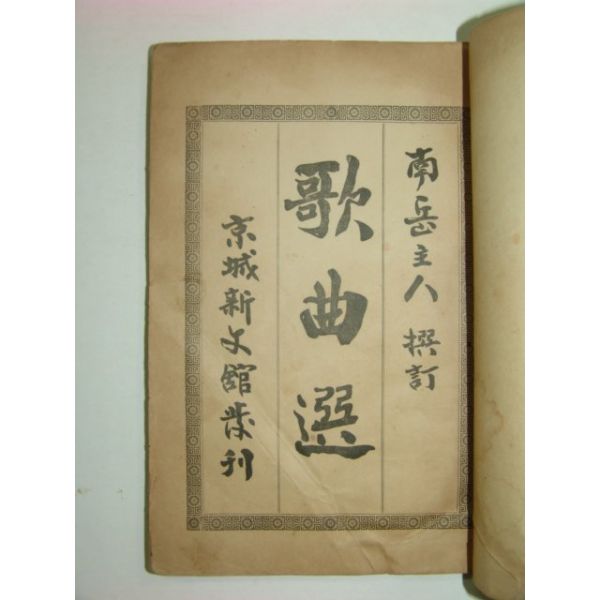 南岳主人 撰訂
歌曲選
京城新文館發刊